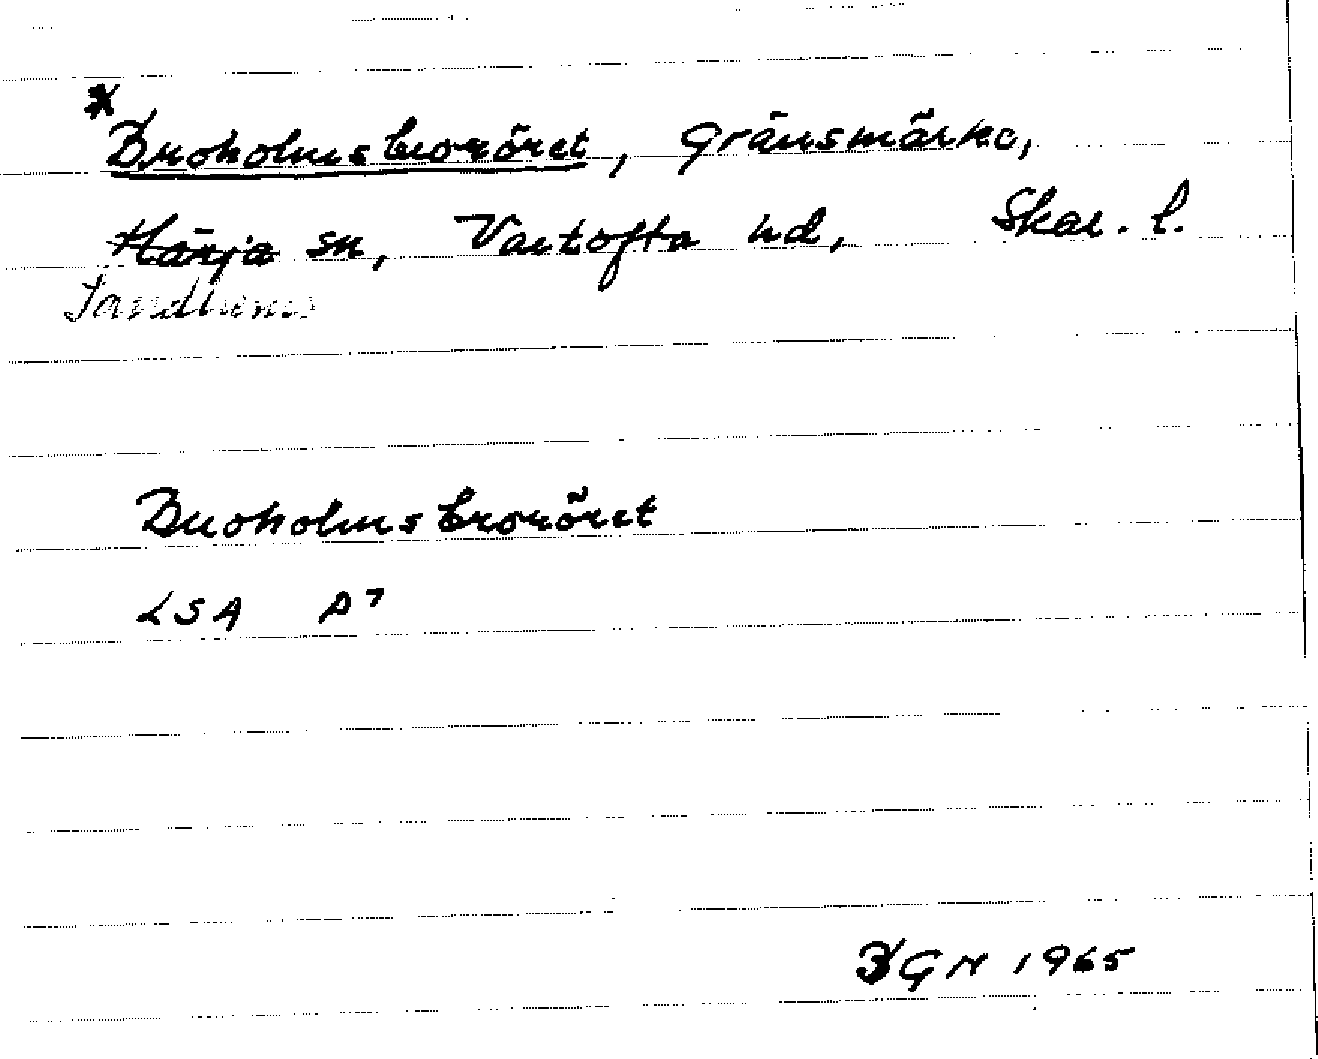 * Broholmsbroröret, gränsmärke,
Härja sn, Vartofta hd, Skar. l.
Sandhems
Broholmsbroröret
LSA A7
BGN 1965